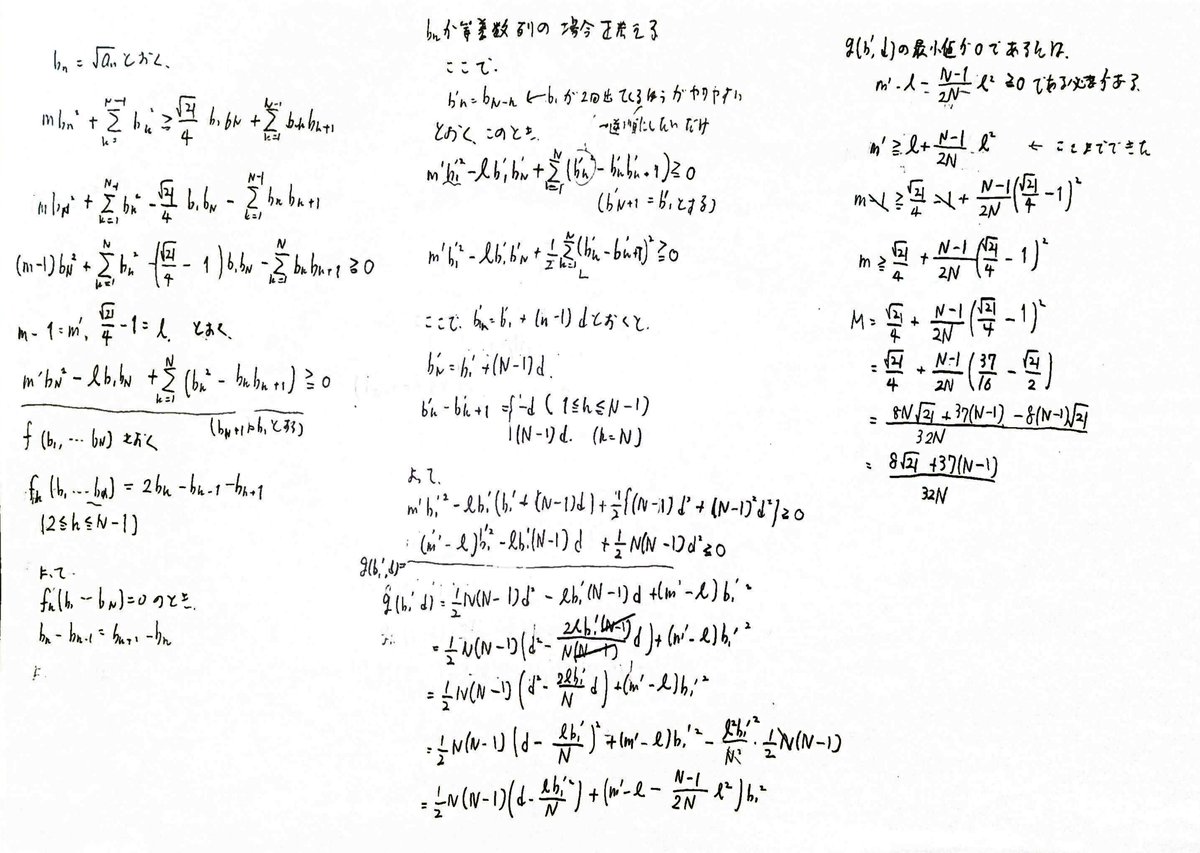 b_n = √a_n とおく、
m b_n² + Σ_{k=1}^{N-1} b_k² ≧ √21/4 b₁b_N + Σ_{k=1}^{N-1} b_k b_{k+1}
m b_N² + Σ_{k=1}^{N-1} b_k² - √21/4 b₁b_N - Σ_{k=1}^{N-1} b_k b_{k+1}
(m-1) b_N² + Σ_{k=1}^{N} b_k² - (√21/4 - 1) b₁b_N - Σ_{k=1}^{N} b_k b_{k+1} ≧ 0
m-1=m', √21/4 -1 = l とおく
m'b_N² - l b₁b_N + Σ_{k=1}^{N} (b_k² - b_k b_{k+1}) ≧ 0
(b_{N+1}はb₁とする)
f(b₁, … b_N) とおく
f_k(b₁, … b_N) = 2b_k - b_{k-1} - b_{k+1}
(2≦k≦N-1)
よって、
f_k'(b₁ … b_N)=0 のとき、
b_k - b_{k-1} = b_{k+1} - b_k
b_nが等差数列の場合を考える
ここで、
b'_n = b_{N-n} ← b₁が2回出てくるほうがやりやすい
→逆順にしたいだけ
とおく、このとき、
m'b₁'² - l b₁'b_N' + Σ_{k=1}^{N} (b_k'² - b_k'b'_{k+1}) ≧ 0
(b'_{N+1} = b'₁とする)
m'b₁'² - l b₁'b_N' + 1/2 Σ_{k=1}^{N} (b_k' - b'_{k+1})² ≧ 0
ここで、b_n' = b₁' + (n-1)d とおくと、
b_N' = b₁' + (N-1)d.
b_k' - b'_{k+1} = { -d (1≦k≦N-1)
(N-1)d. (k=N)
よって、
m'b₁'² - l b₁'(b₁' + (N-1)d) + 1/2{(N-1)d² + (N-1)²d²} ≧ 0
(m'-l)b₁'² - l b₁'(N-1)d + 1/2 N(N-1)d² ≧ 0
g(b₁', d)=
g(b₁', d) = 1/2 N(N-1)d² - l b₁'(N-1)d + (m'-l)b₁'²
= 1/2 N(N-1)(d² - 2l b₁'(N-1)/N(N-1) d) + (m'-l)b₁'²
= 1/2 N(N-1)(d² - 2l b₁'/N d) + (m'-l)b₁'²
= 1/2 N(N-1)(d - l b₁'/N)² + (m'-l)b₁'² - l²b₁'²/N² · 1/2 N(N-1)
= 1/2 N(N-1)(d - l b₁'²/N) + (m'-l - N-1/2N l²) b₁²
g(b₁', d)の最小値が0であるには、
m'-l = N-1/2N l² ≧0 である必要がある.
m' ≧ l + N-1/2N l² ← ここまでできた
m-1 ≧ √21/4 -1 + N-1/2N (√21/4 -1)²
m ≧ √21/4 + N-1/2N (√21/4 -1)²
M = √21/4 + N-1/2N (√21/4 -1)²
= √21/4 + N-1/2N (37/16 - √21/2)
= 8N√21 + 37(N-1) - 8(N-1)√21/32N
= 8√21 + 37(N-1)/32N